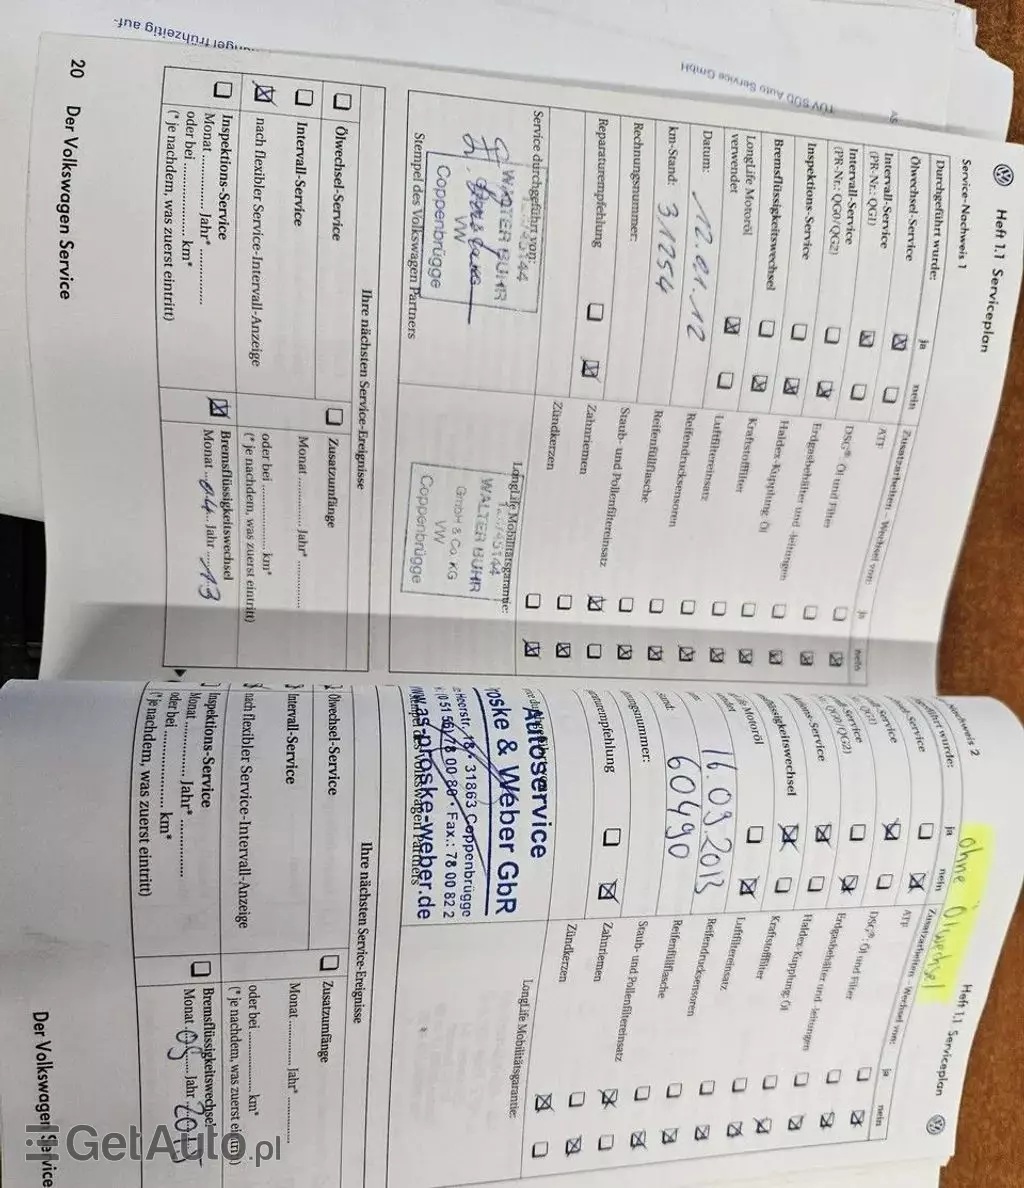 Heft 1.1 Serviceplan
Service-Nachweis 1
Durchgeführt wurde:
ja
nein
Ölwechsel-Service
Intervall-Service
(PR-Nr.: QG1)
Intervall-Service
(PR-Nr.: QG0/QG2)
Inspektions-Service
Bremsflüssigkeitswechsel
LongLife Motoröl
verwendet
Datum: 12.01.12
km-Stand: 31254
Rechnungsnummer:
Reparaturempfehlung
Service durchgeführt von:
WALTER BUHR
VW
Coppenbrügge
Stempel des Volkswagen Partners
Zusatzarbeiten – Wechsel von:
ja
nein
ATF
DSG®: Öl und Filter
Erdgasbehälter und -leitungen
Haldex-Kupplung: Öl
Kraftstofffilter
Luftfiltereinsatz
Reifendrucksensoren
Reifenfüllflasche
Staub- und Pollenfiltereinsatz
Zahnriemen
Zündkerzen
LongLife Mobilitätsgarantie:
WALTER BUHR
GmbH & Co. KG
VW
Coppenbrügge
Ihre nächsten Service-Ereignisse
Ölwechsel-Service
Intervall-Service
nach flexibler Service-Intervall-Anzeige
Inspektions-Service
Monat ............ Jahr* ..................
oder bei .................. km*
(* je nachdem, was zuerst eintritt)
Zusatzumfänge
Monat ............ Jahr* ..................
oder bei .................. km*
(* je nachdem, was zuerst eintritt)
Bremsflüssigkeitswechsel
Monat 04 Jahr 13
20 Der Volkswagen Service
TÜV SÜD Auto Service GmbH
frühzeitig auf-
ohne Ölwechsel
Heft 1.1 Serviceplan
Nachweis 2
geführt wurde:
ja
nein
Service
Service
QG1)
Service
QG0/QG2)
ons-Service
lüssigkeitswechsel
fe Motoröl
ndet
16.09.2013
stand: 60490
ungsnummer:
araturempfehlung
Autoservice
roske & Weber GbR
Heerstr. 18 • 31863 Coppenbrügge
(0 51 56) 78 00 80 • Fax.: 78 00 82 2
ww.as-proske-weber.de
Zusatzarbeiten – Wechsel von:
ja
nein
ATF
DSG®: Öl und Filter
Erdgasbehälter und -leitungen
Haldex-Kupplung: Öl
Kraftstofffilter
Luftfiltereinsatz
Reifendrucksensoren
Reifenfüllflasche
Staub- und Pollenfiltereinsatz
Zahnriemen
Zündkerzen
LongLife Mobilitätsgarantie:
Ihre nächsten Service-Ereignisse
Ölwechsel-Service
Intervall-Service
nach flexibler Service-Intervall-Anzeige
Inspektions-Service
Monat ............ Jahr* ..................
oder bei .................. km*
(* je nachdem, was zuerst eintritt)
Zusatzumfänge
Monat ............ Jahr* ..................
oder bei .................. km*
(* je nachdem, was zuerst eintritt)
Bremsflüssigkeitswechsel
Monat 09 Jahr 2015
Der Volkswagen Service
GetAuto.pl